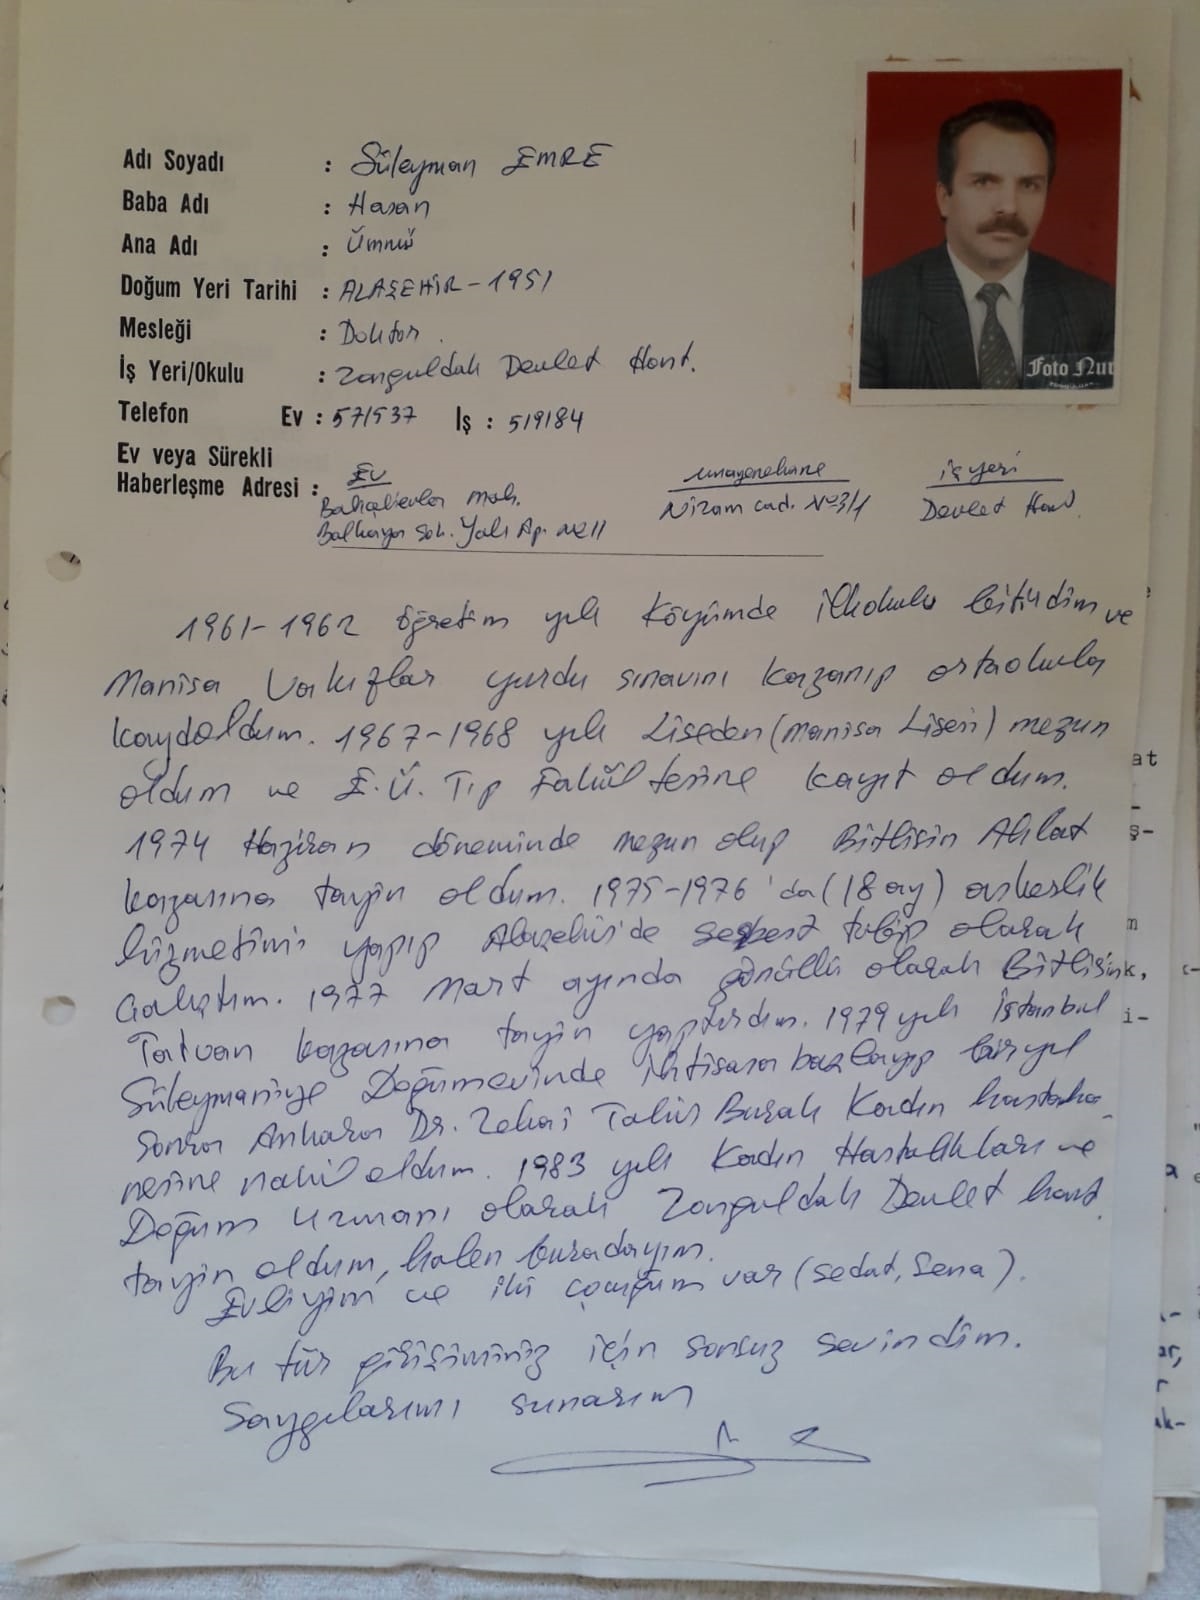 Adı Soyadı : Süleyman EMRE
Baba Adı : Hasan
Ana Adı : Ümmü
Doğum Yeri Tarihi : ALAŞEHİR - 1951
Mesleği : Doktor.
İş Yeri/Okulu : Zonguldak Devlet Hast.
Telefon Ev : 571537 İş : 519184
Ev veya Sürekli
Haberleşme Adresi :
Ev
Bahçelievler Mah.
Sok. Yalı Ap. No 11
muayenehane
Nizam cad. No 3/1
iş yeri
Devlet Hast.
Foto Nur
1961-1962 öğretim yılı Köyümde ilkokulu bitirdim ve
Manisa Vakıflar yurdu sınavını kazanıp ortaokula
kaydoldum. 1967-1968 yılı Liseden (Manisa Lisesi) mezun
oldum ve E.Ü. Tıp Fakültesine kayıt oldum.
1974 Haziran döneminde mezun olup Bitlisin Ahlat
kazasına tayin oldum. 1975-1976 'da (18 ay) askerlik
hizmetimi yapıp Alaşehir'de serbest tabip olarak
çalıştım. 1977 Mart ayında gönüllü olarak Bitlisin
Tatvan kazasına tayin yaptırdım. 1979 yılı İstanbul
Süleymaniye Doğumevinde ihtisasa başlayıp bir yıl
sonra Ankara Dr. Zekai Tahir Burak Kadın hastaha-
nesine nakil oldum. 1983 yılı Kadın Hastalıkları ve
Doğum Uzmanı olarak Zonguldak Devlet hast.
tayin oldum, halen buradayım.
Evliyim ve iki çocuğum var (Sedat, Sena).
Bu tür girişiminiz için sonsuz sevindim.
Saygılarımı sunarım